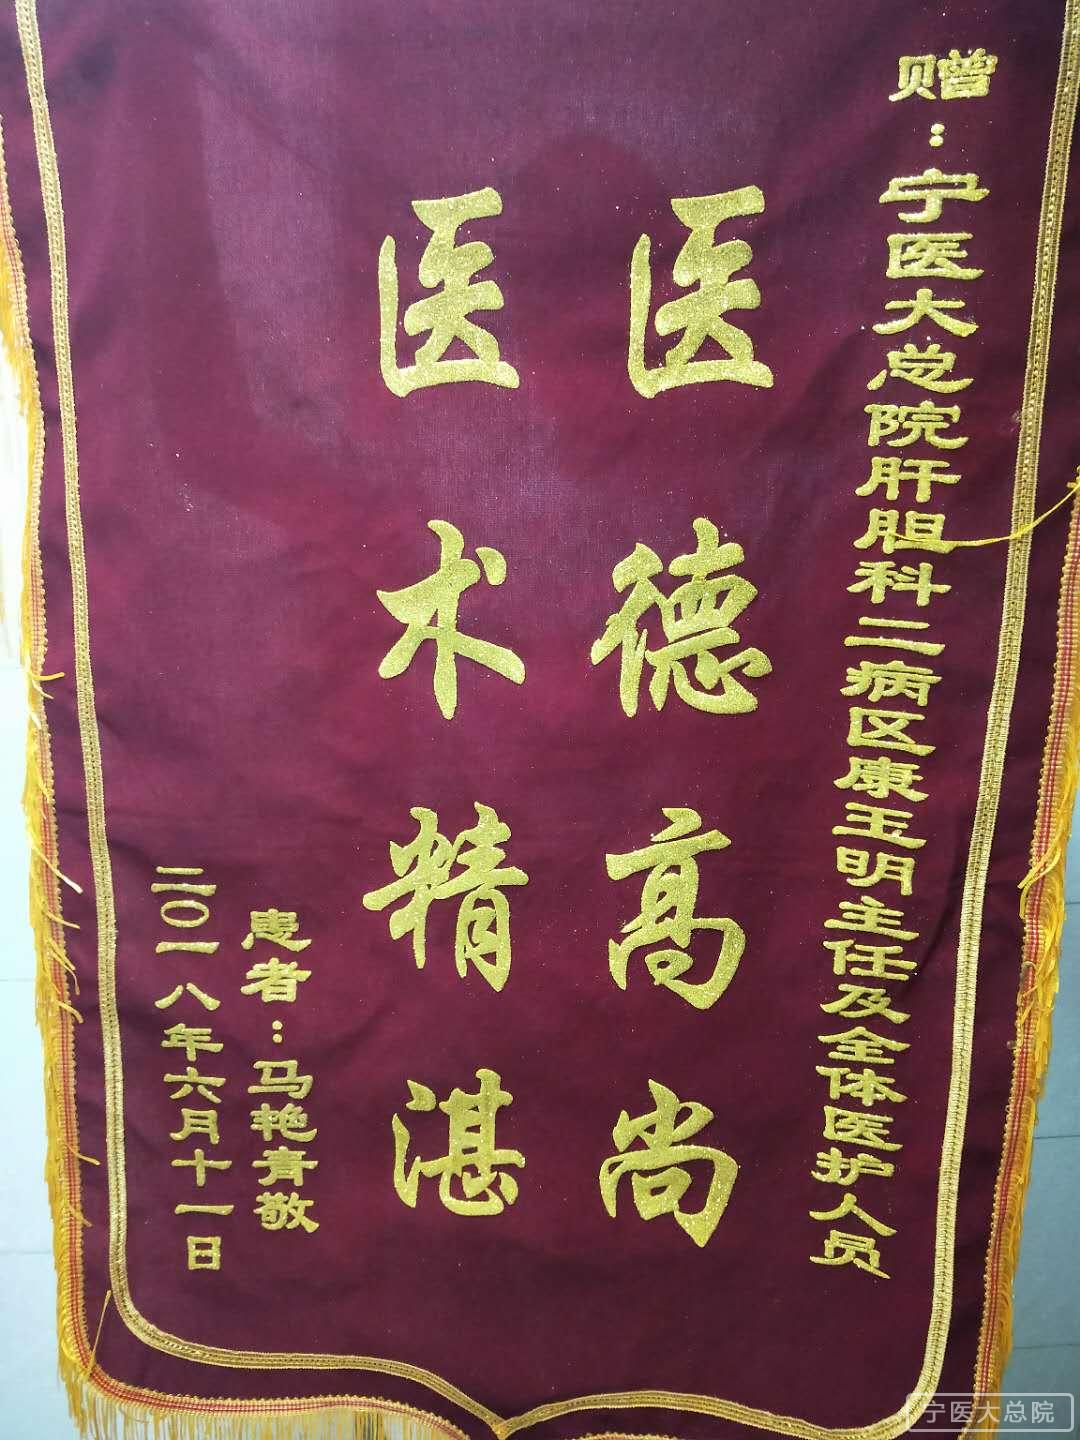 赠：宁医大总院肝胆科二病区康玉明主任及全体医护人员
医德高尚
医术精湛
患者：马艳青敬
二〇一八年六月十一日
宁医大总院